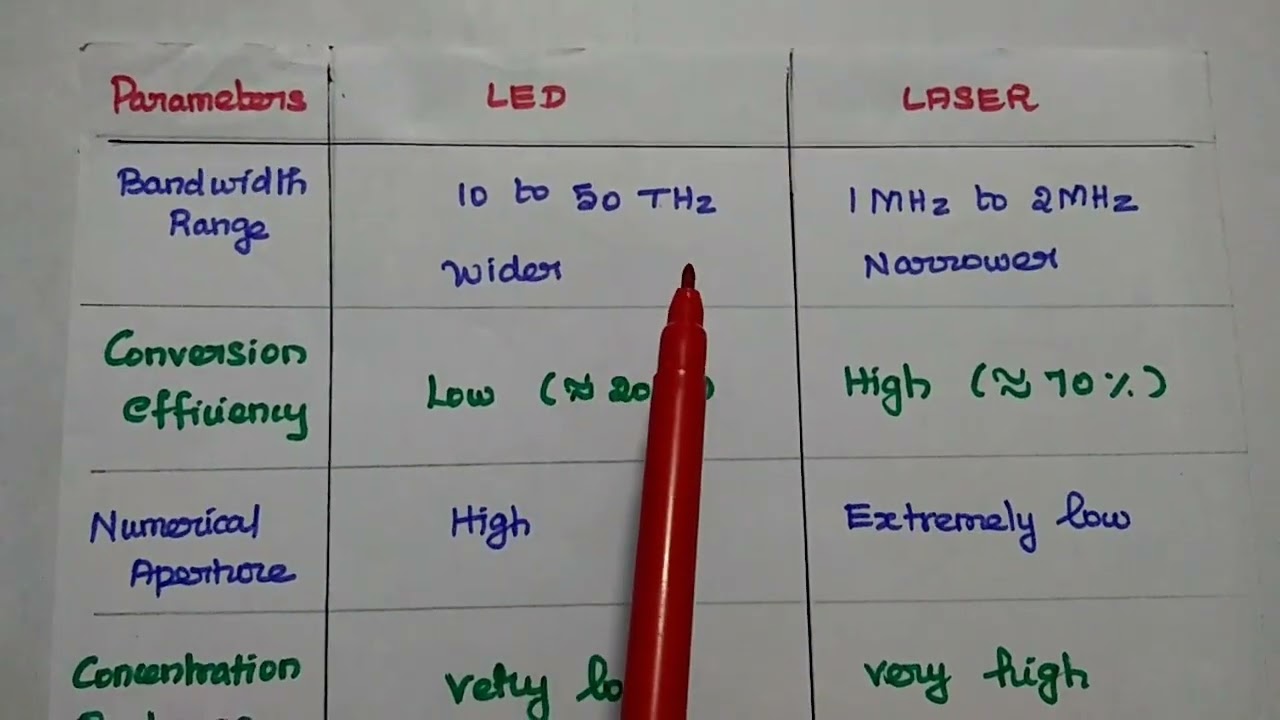 Parameters LED LASER
Bandwidth 10 to 50 THz 1 MHz to 2 MHz
Range Wider Narrower
Conversion Low (≈ 20 ) High (≈ 70%)
efficiency
Numerical High Extremely low
Aperture
Concentration very very high